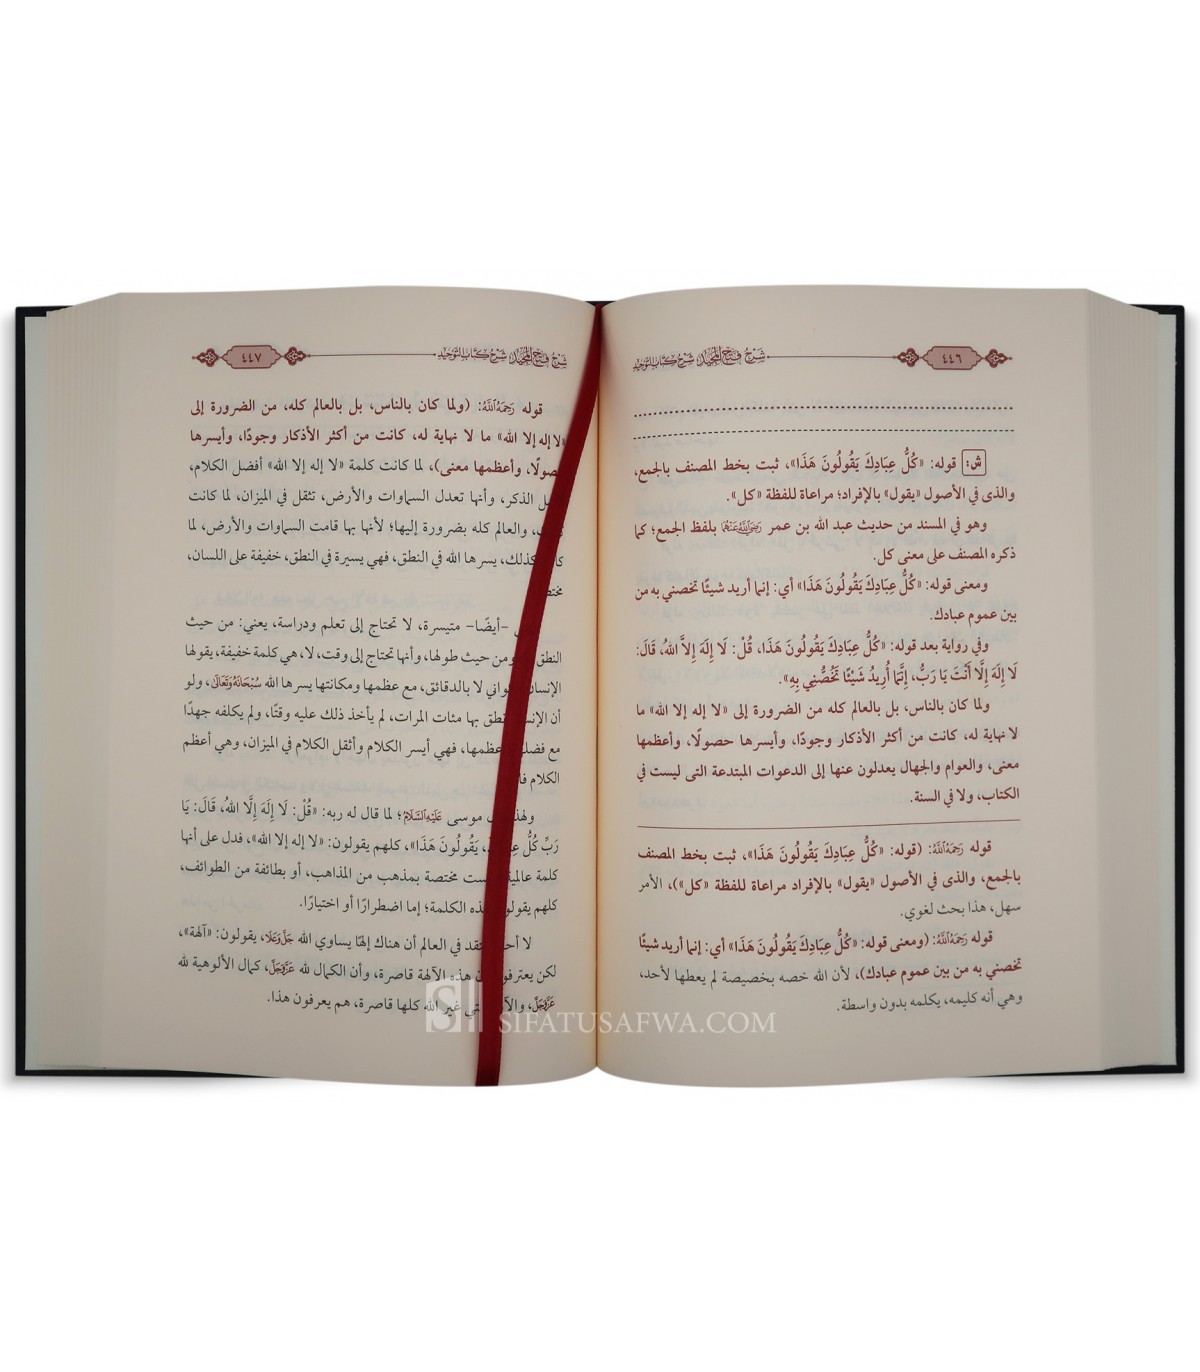 ٤٤٦
شرح فتح المجيد شرح كتاب التوحيد
ش: قوله: «كُلُّ عِبَادِكَ يَقُولُونَ هَذَا»، ثبت بخط المصنف بالجمع،
والذى في الأصول «يقول» بالإفراد؛ مراعاة للفظة «كل».
وهو في المسند من حديث عبد الله بن عمر رَضِيَ اللَّهُ عَنْهُمَا بلفظ الجمع؛ كما
ذكره المصنف على معنى كل.
ومعنى قوله: «كُلُّ عِبَادِكَ يَقُولُونَ هَذَا» أي: إنما أريد شيئًا تخصني به من
بين عموم عبادك.
وفي رواية بعد قوله: «كُلُّ عِبَادِكَ يَقُولُونَ هَذَا، قُلْ: لَا إِلَهَ إِلاَّ اللهُ، قَالَ:
لَا إِلَهَ إِلَّا أَنْتَ يَا رَبُّ، إِنَّمَا أُرِيدُ شَيْئًا تَخُصُّنِي بِهِ».
ولما كان بالناس، بل بالعالم كله من الضرورة إلى «لا إله إلا الله» ما
لا نهاية له، كانت من أكثر الأذكار وجودًا، وأيسرها حصولًا، وأعظمها
معنى، والعوام والجهال يعدلون عنها إلى الدعوات المبتدعة التى ليست في
الكتاب، ولا في السنة.
قوله رَحِمَهُ اللَّهُ: (قوله: «كُلُّ عِبَادِكَ يَقُولُونَ هَذَا»، ثبت بخط المصنف
بالجمع، والذى في الأصول «يقول» بالإفراد مراعاة للفظة «كل»)، الأمر
سهل، هذا بحث لغوي.
قوله رَحِمَهُ اللَّهُ: (ومعنى قوله: «كُلُّ عِبَادِكَ يَقُولُونَ هَذَا» أي: إنما أريد شيئًا
تخصني به من بين عموم عبادك)، لأن الله خصه بخصيصة لم يعطها لأحد،
وهي أنه كليمه، يكلمه بدون واسطة.
٤٤٧
شرح فتح المجيد شرح كتاب التوحيد
قوله رَحِمَهُ اللَّهُ: (ولما كان بالناس، بل بالعالم كله، من الضرورة إلى
«لا إله إلا الله» ما لا نهاية له، كانت من أكثر الأذكار وجودًا، وأيسرها
وأعظمها معنى)، لما كانت كلمة «لا إله إلا الله» أفضل الكلام،
الذكر، وأنها تعدل السماوات والأرض، تثقل في الميزان، لما كانت
والعالم كله بضرورة إليها؛ لأنها بها قامت السماوات والأرض، لما
كذلك، يسرها الله في النطق، فهي يسيرة في النطق، خفيفة على اللسان،
-أيضًا- متيسرة، لا تحتاج إلى تعلم ودراسة، يعني: من حيث
النطق ومن حيث طولها، وأنها تحتاج إلى وقت، لا، هي كلمة خفيفة، يقولها
لا بالدقائق، مع عظمها ومكانتها يسرها الله سُبْحَانَهُ وَتَعَالَى، ولو
أن نطق بها مئات المرات، لم يأخذ ذلك عليه وقتًا، ولم يكلفه جهدًا
مع فضلها وعظمها، فهي أيسر الكلام وأثقل الكلام في الميزان، وهي أعظم
الكلام
موسى عَلَيْهِ السَّلَامُ؛ لما قال له ربه: «قُلْ: لَا إِلَهَ إِلَّا اللهُ، قَالَ: يَا
رَبِّ كُلُّ يَقُولُونَ هَذَا»، كلهم يقولون: «لا إله إلا الله»، فدل على أنها
كلمة عالمية مختصة بمذهب من المذاهب، أو بطائفة من الطوائف،
كلهم هذه الكلمة؛ إما اضطرارًا أو اختيارًا.
لا في العالم أن هناك إلهًا يساوي الله جَلَّ وَعَلَا، يقولون: «آلهة»،
لكن هذه الآلهة قاصرة، وأن الكمال لله عَزَّ وَجَلَّ، كمال الألوهية لله
عَزَّ وَجَلَّ، غير الله كلها قاصرة، هم يعرفون هذا.
SIFATUSAFWA.COM